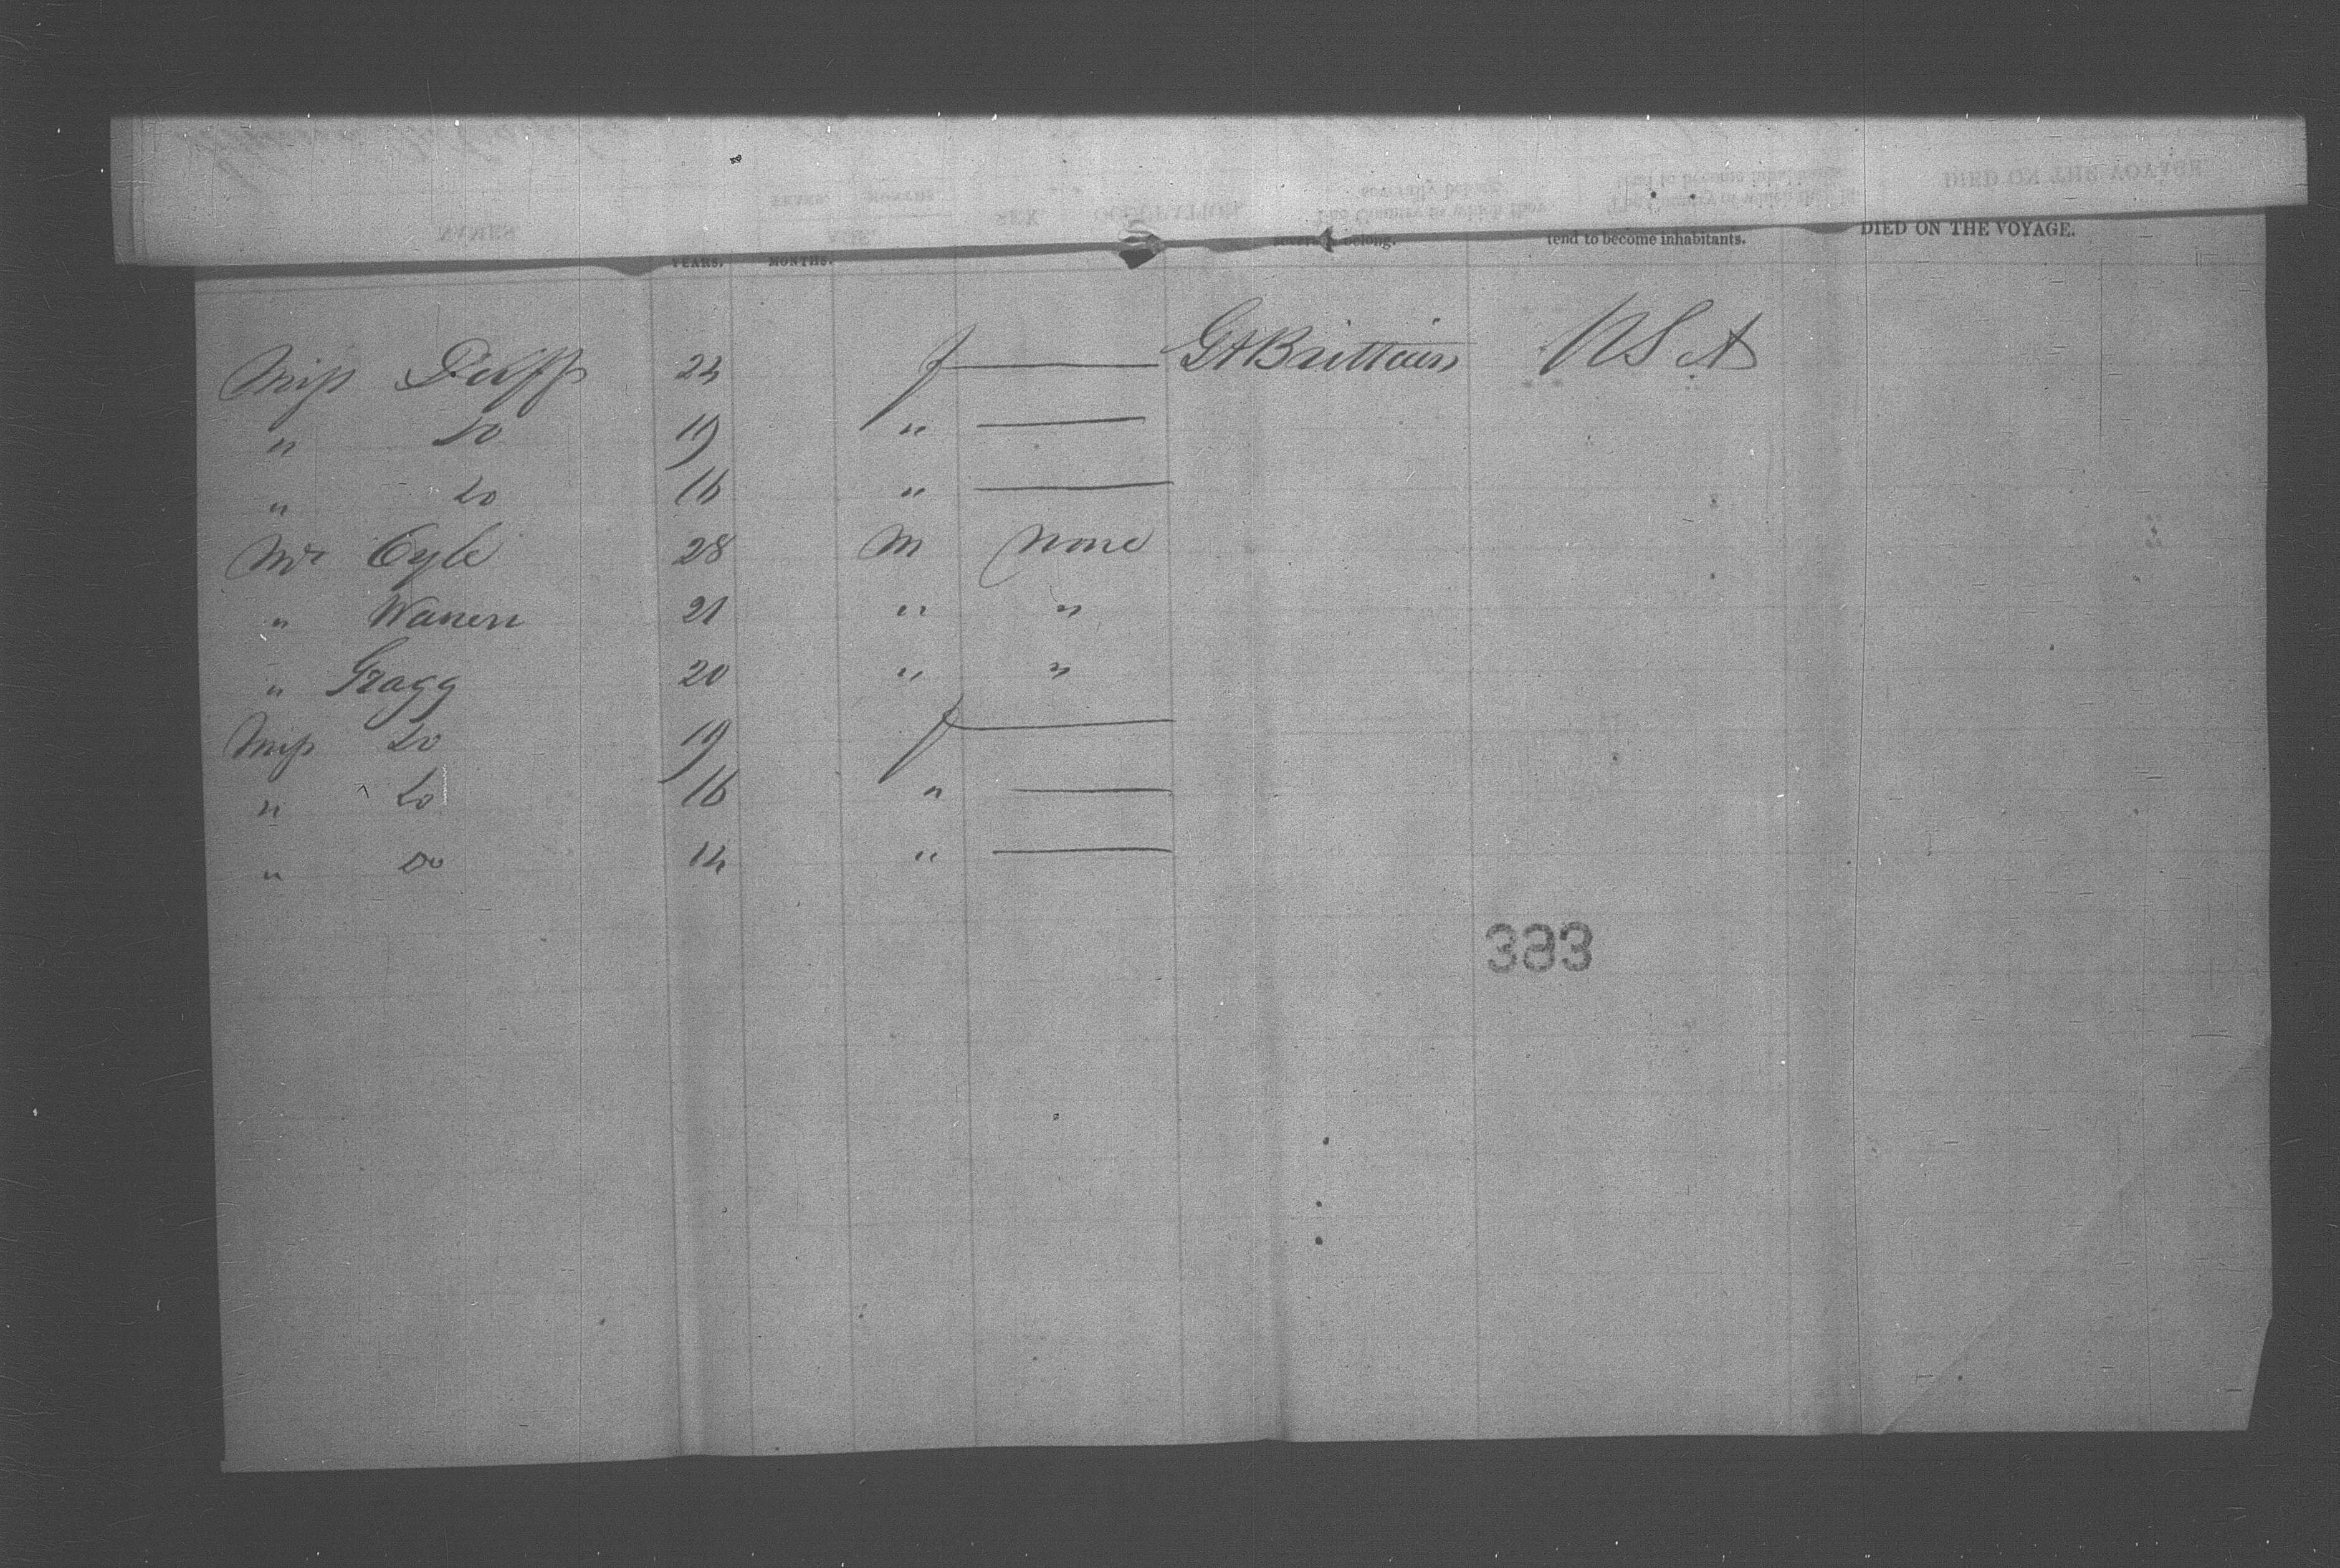 YEARS. MONTHS. belong. tend to become inhabitants. DIED ON THE VOYAGE.
Miss Duff 24 f Gt Brittain USA
" Do 19 "
" Do 16 "
Mr Cyle 28 M None
" Warren 21 " "
" Gragg 20 " "
Miss Do 19 f
" Do 16 "
" Do 14 "